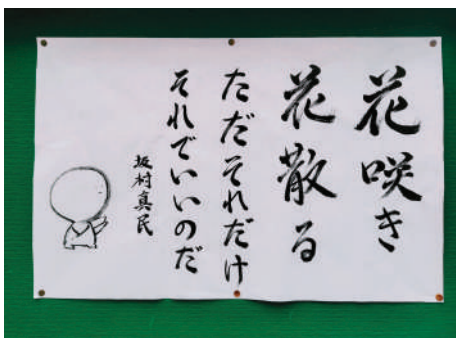 花咲き
花散る
ただそれだけ
それでいいのだ
坂村真民